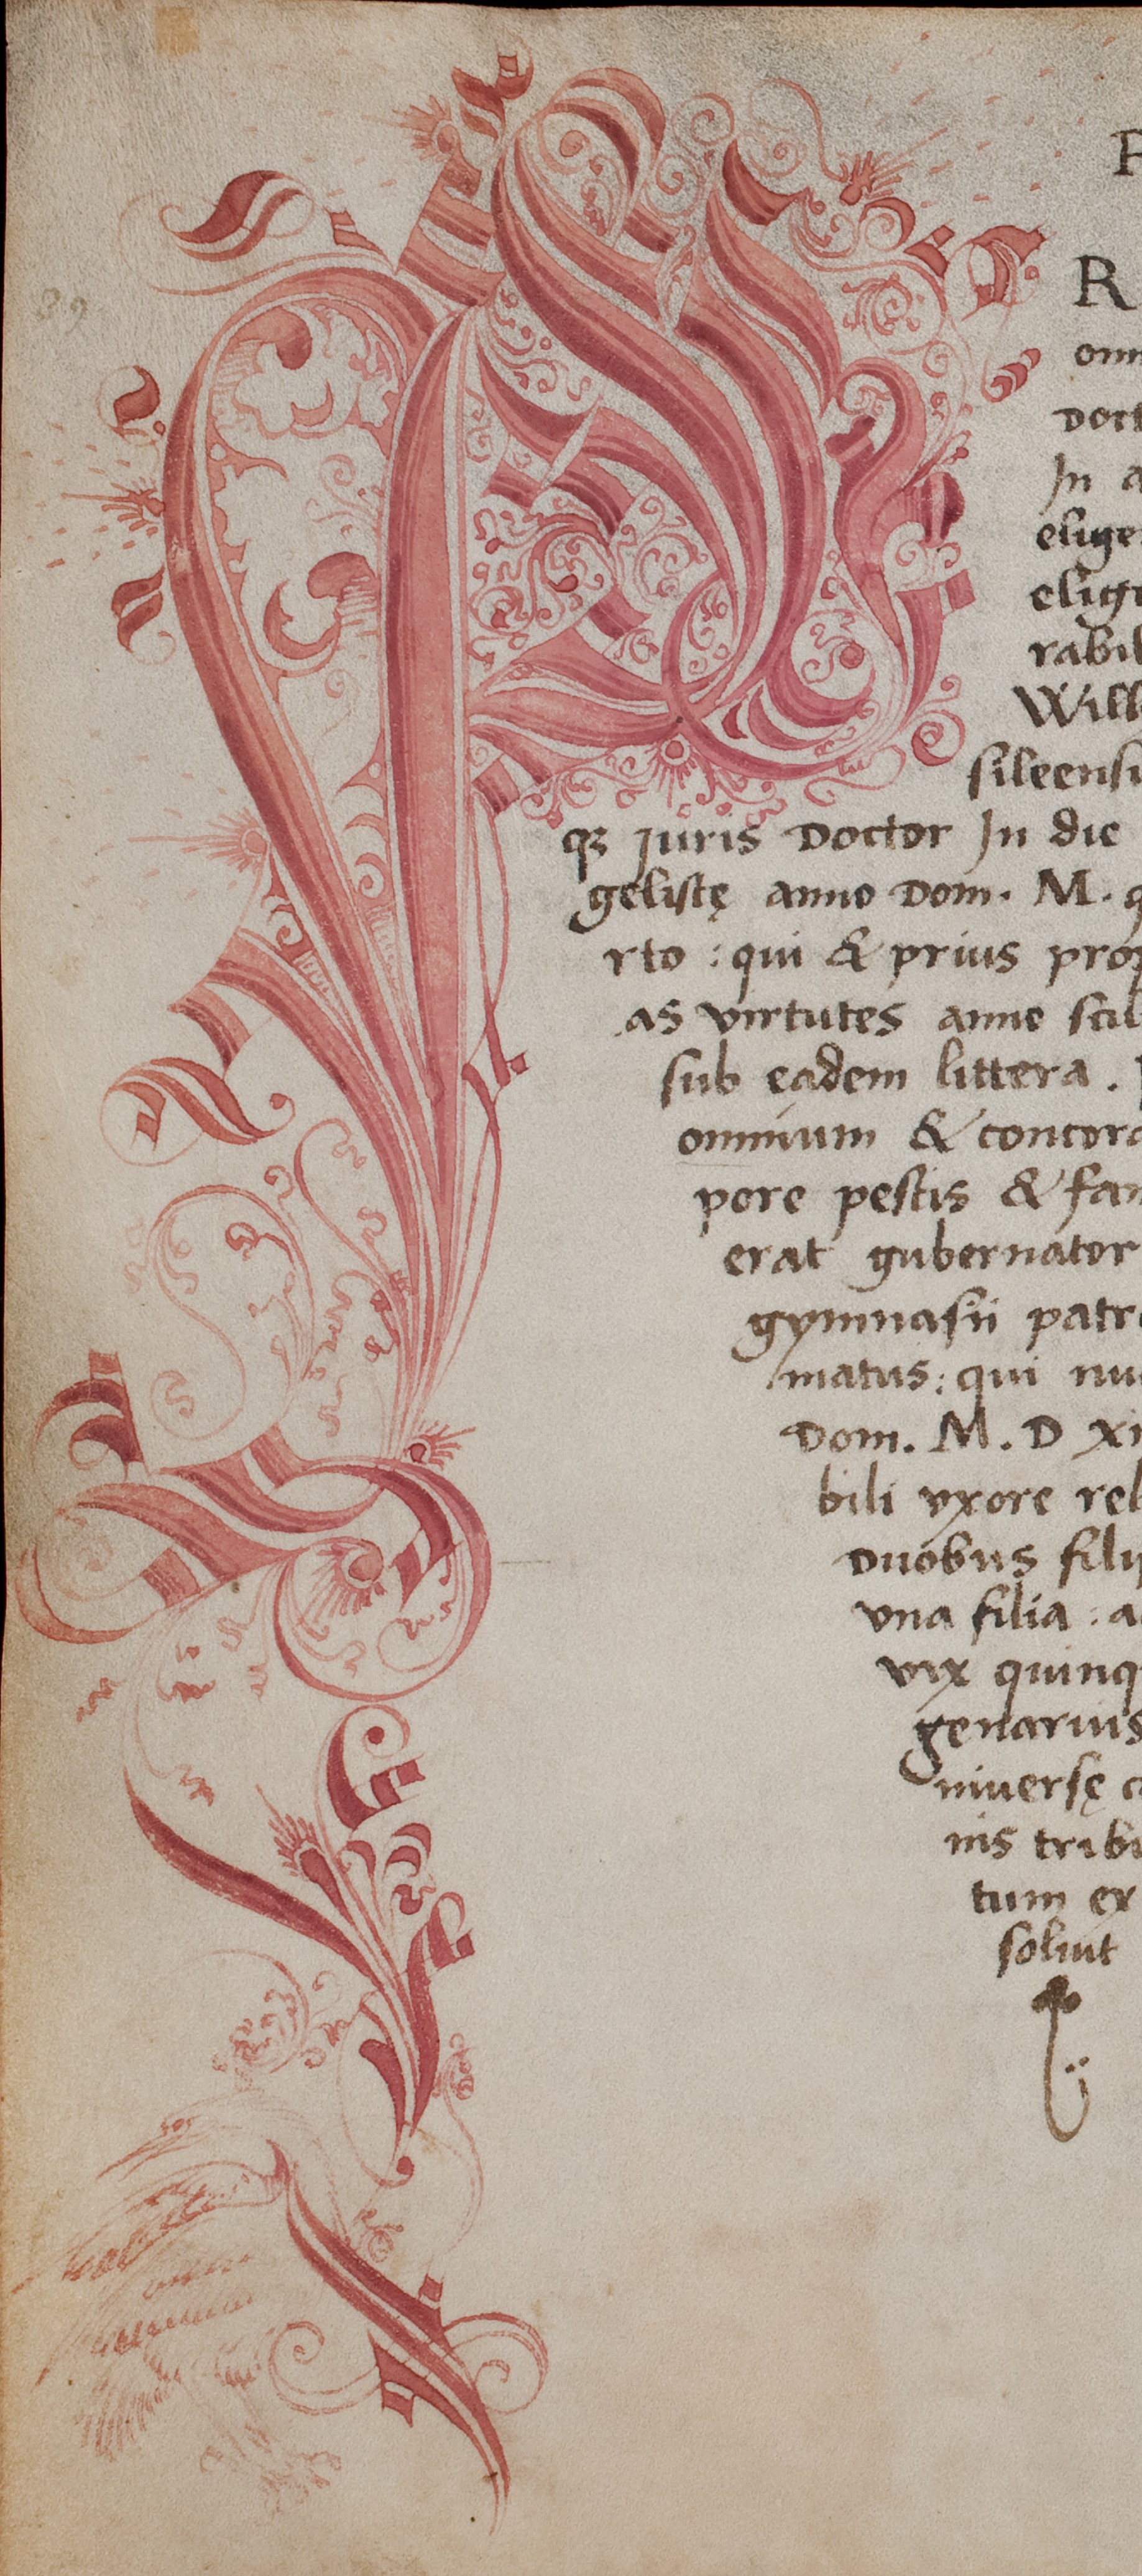 P
R
omn
Doct
In a
elige
eligi
rabil
Will
sileensi
qꝫ Juris Doctor In die
gelistę anno Dom. M. q
rto : qui & prius prop
as virtutes anno scil
sub eadem littera .
omnium & concord
pore pestis & fam
erat gubernator
gymnasii patro
matus: qui nu
Dom. M. D xi
bili vxore rel
duobus filij
vna filia : a
vix quinq
genarius
niuersę c
nis tribu
tum ex
soluit